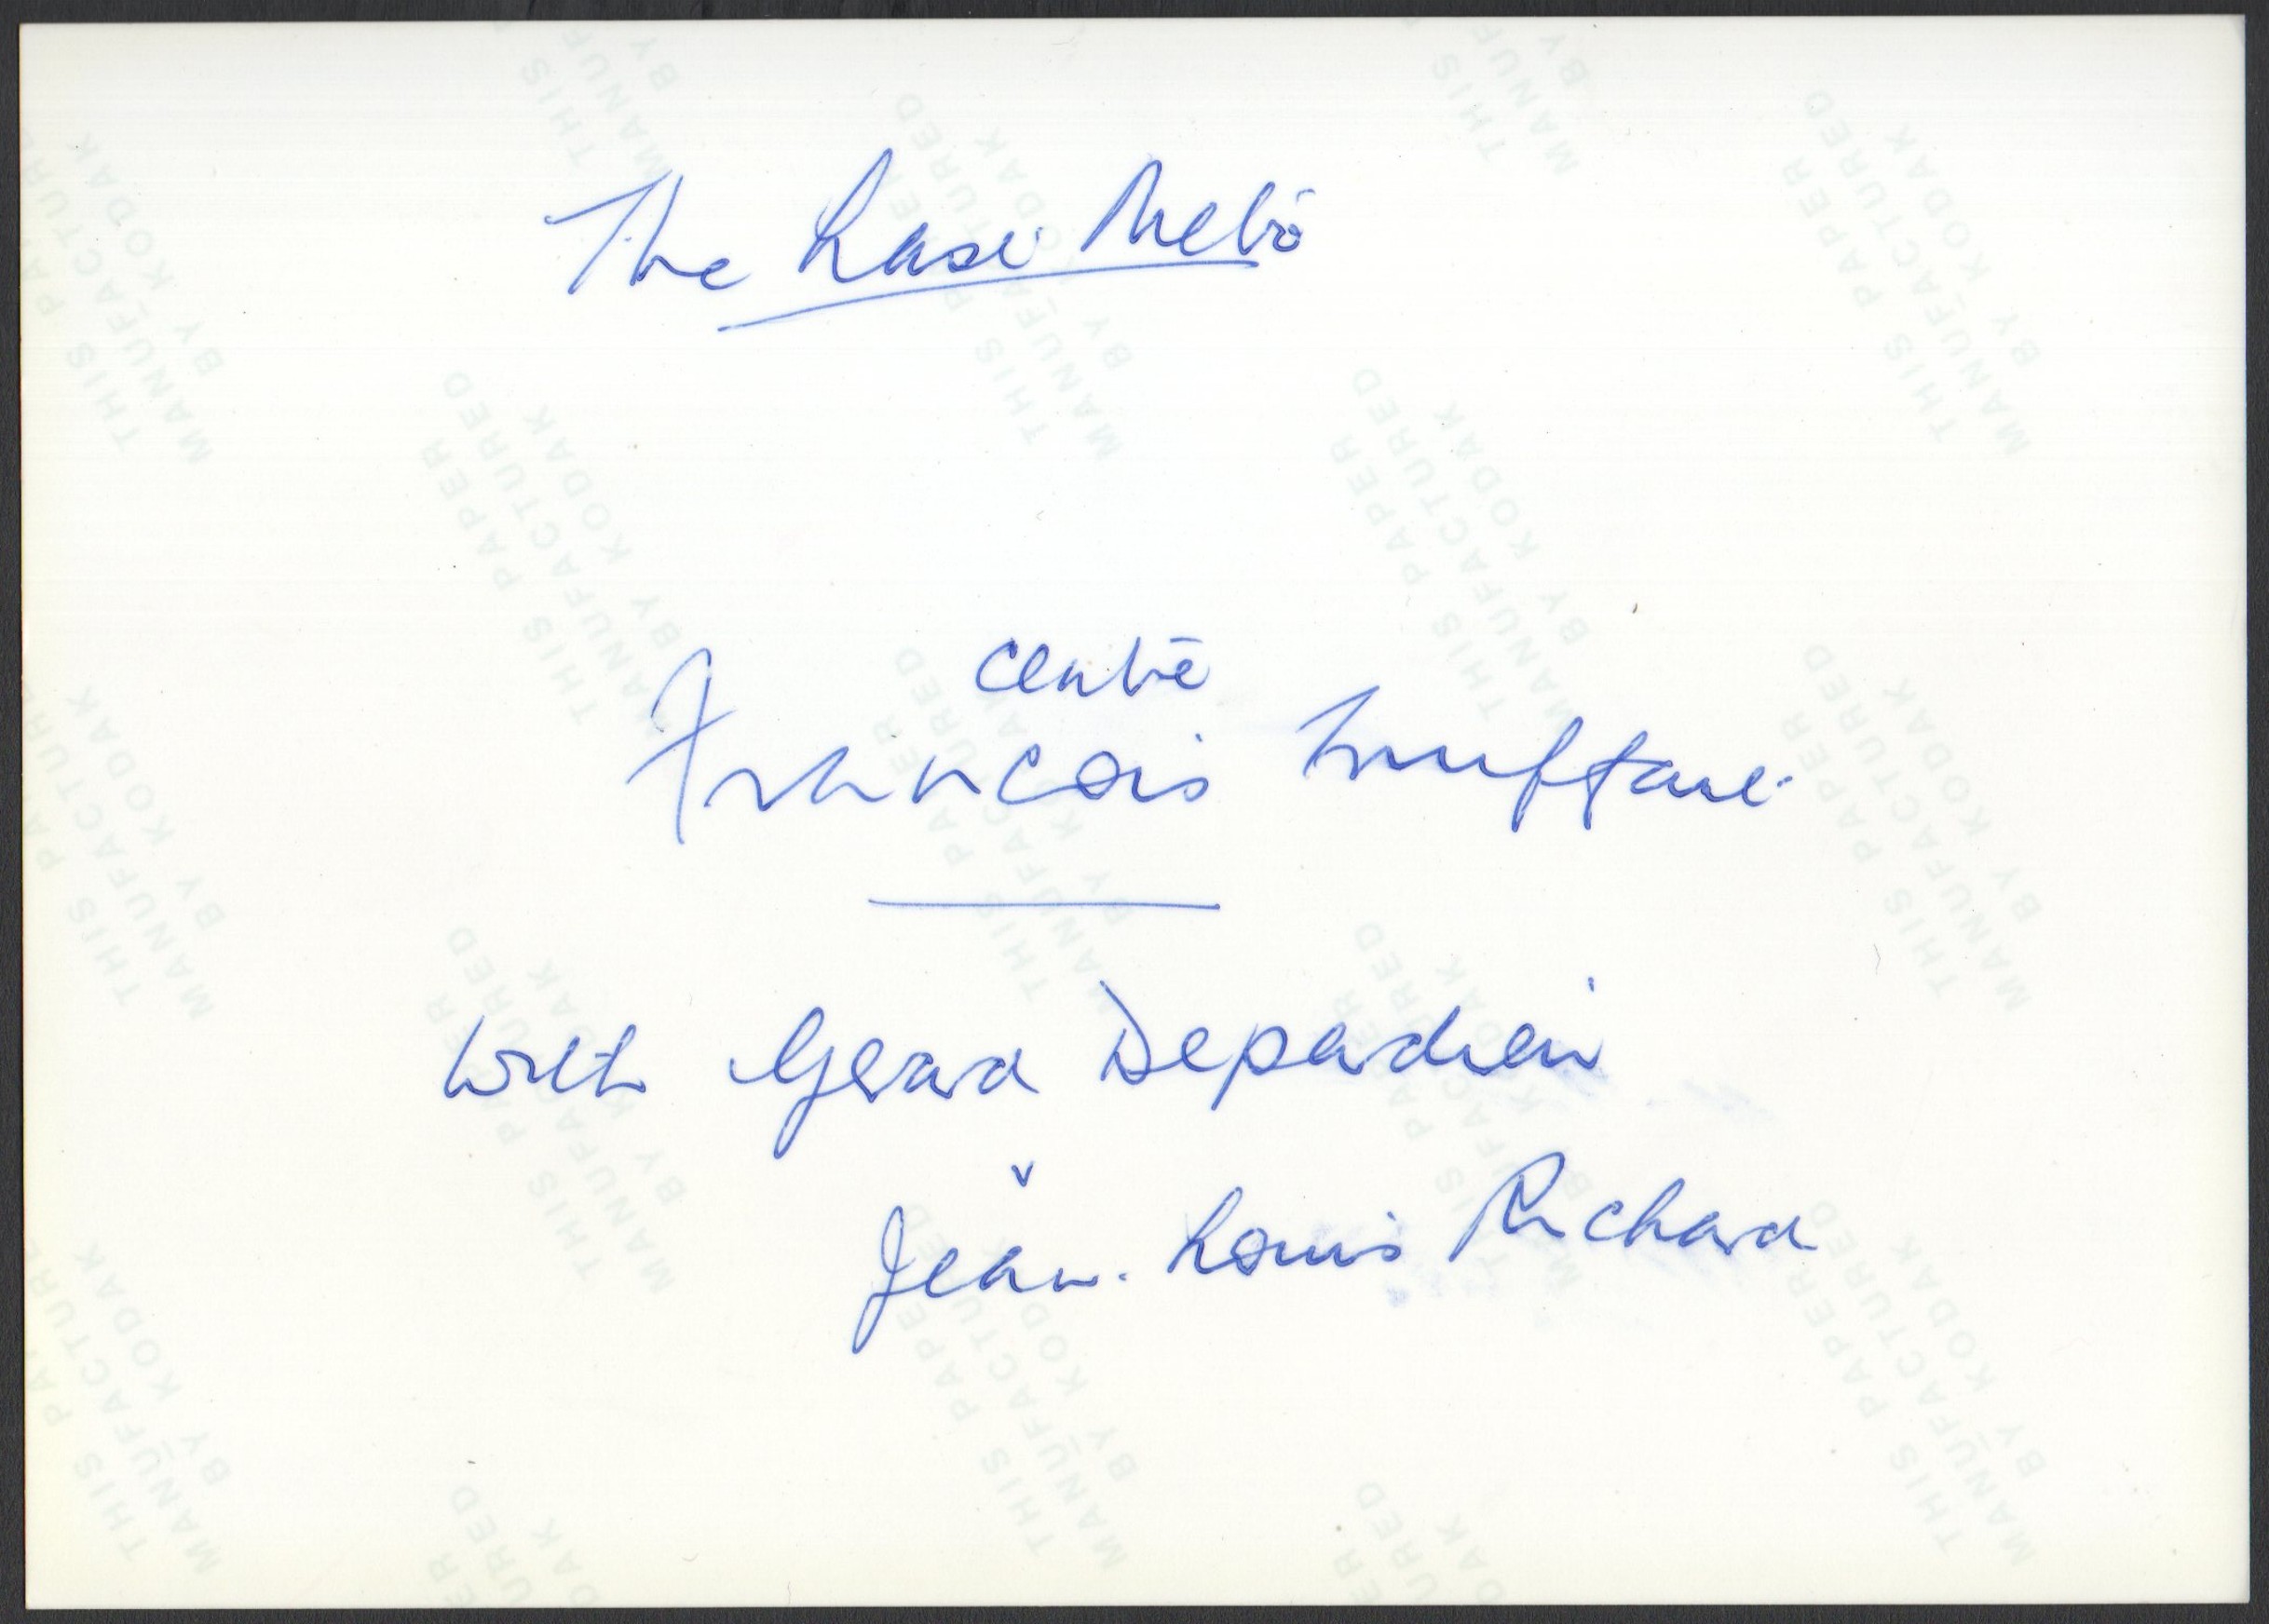 The Last Metro
centre
Francois Truffaut
With Gerard Depardieu
Jean-Louis Richard
THIS PAPER
MANUFACTURED
BY KODAK